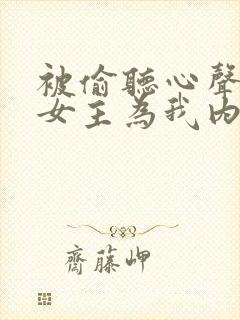 被偷聽心聲
女主為我內
齋藤岬